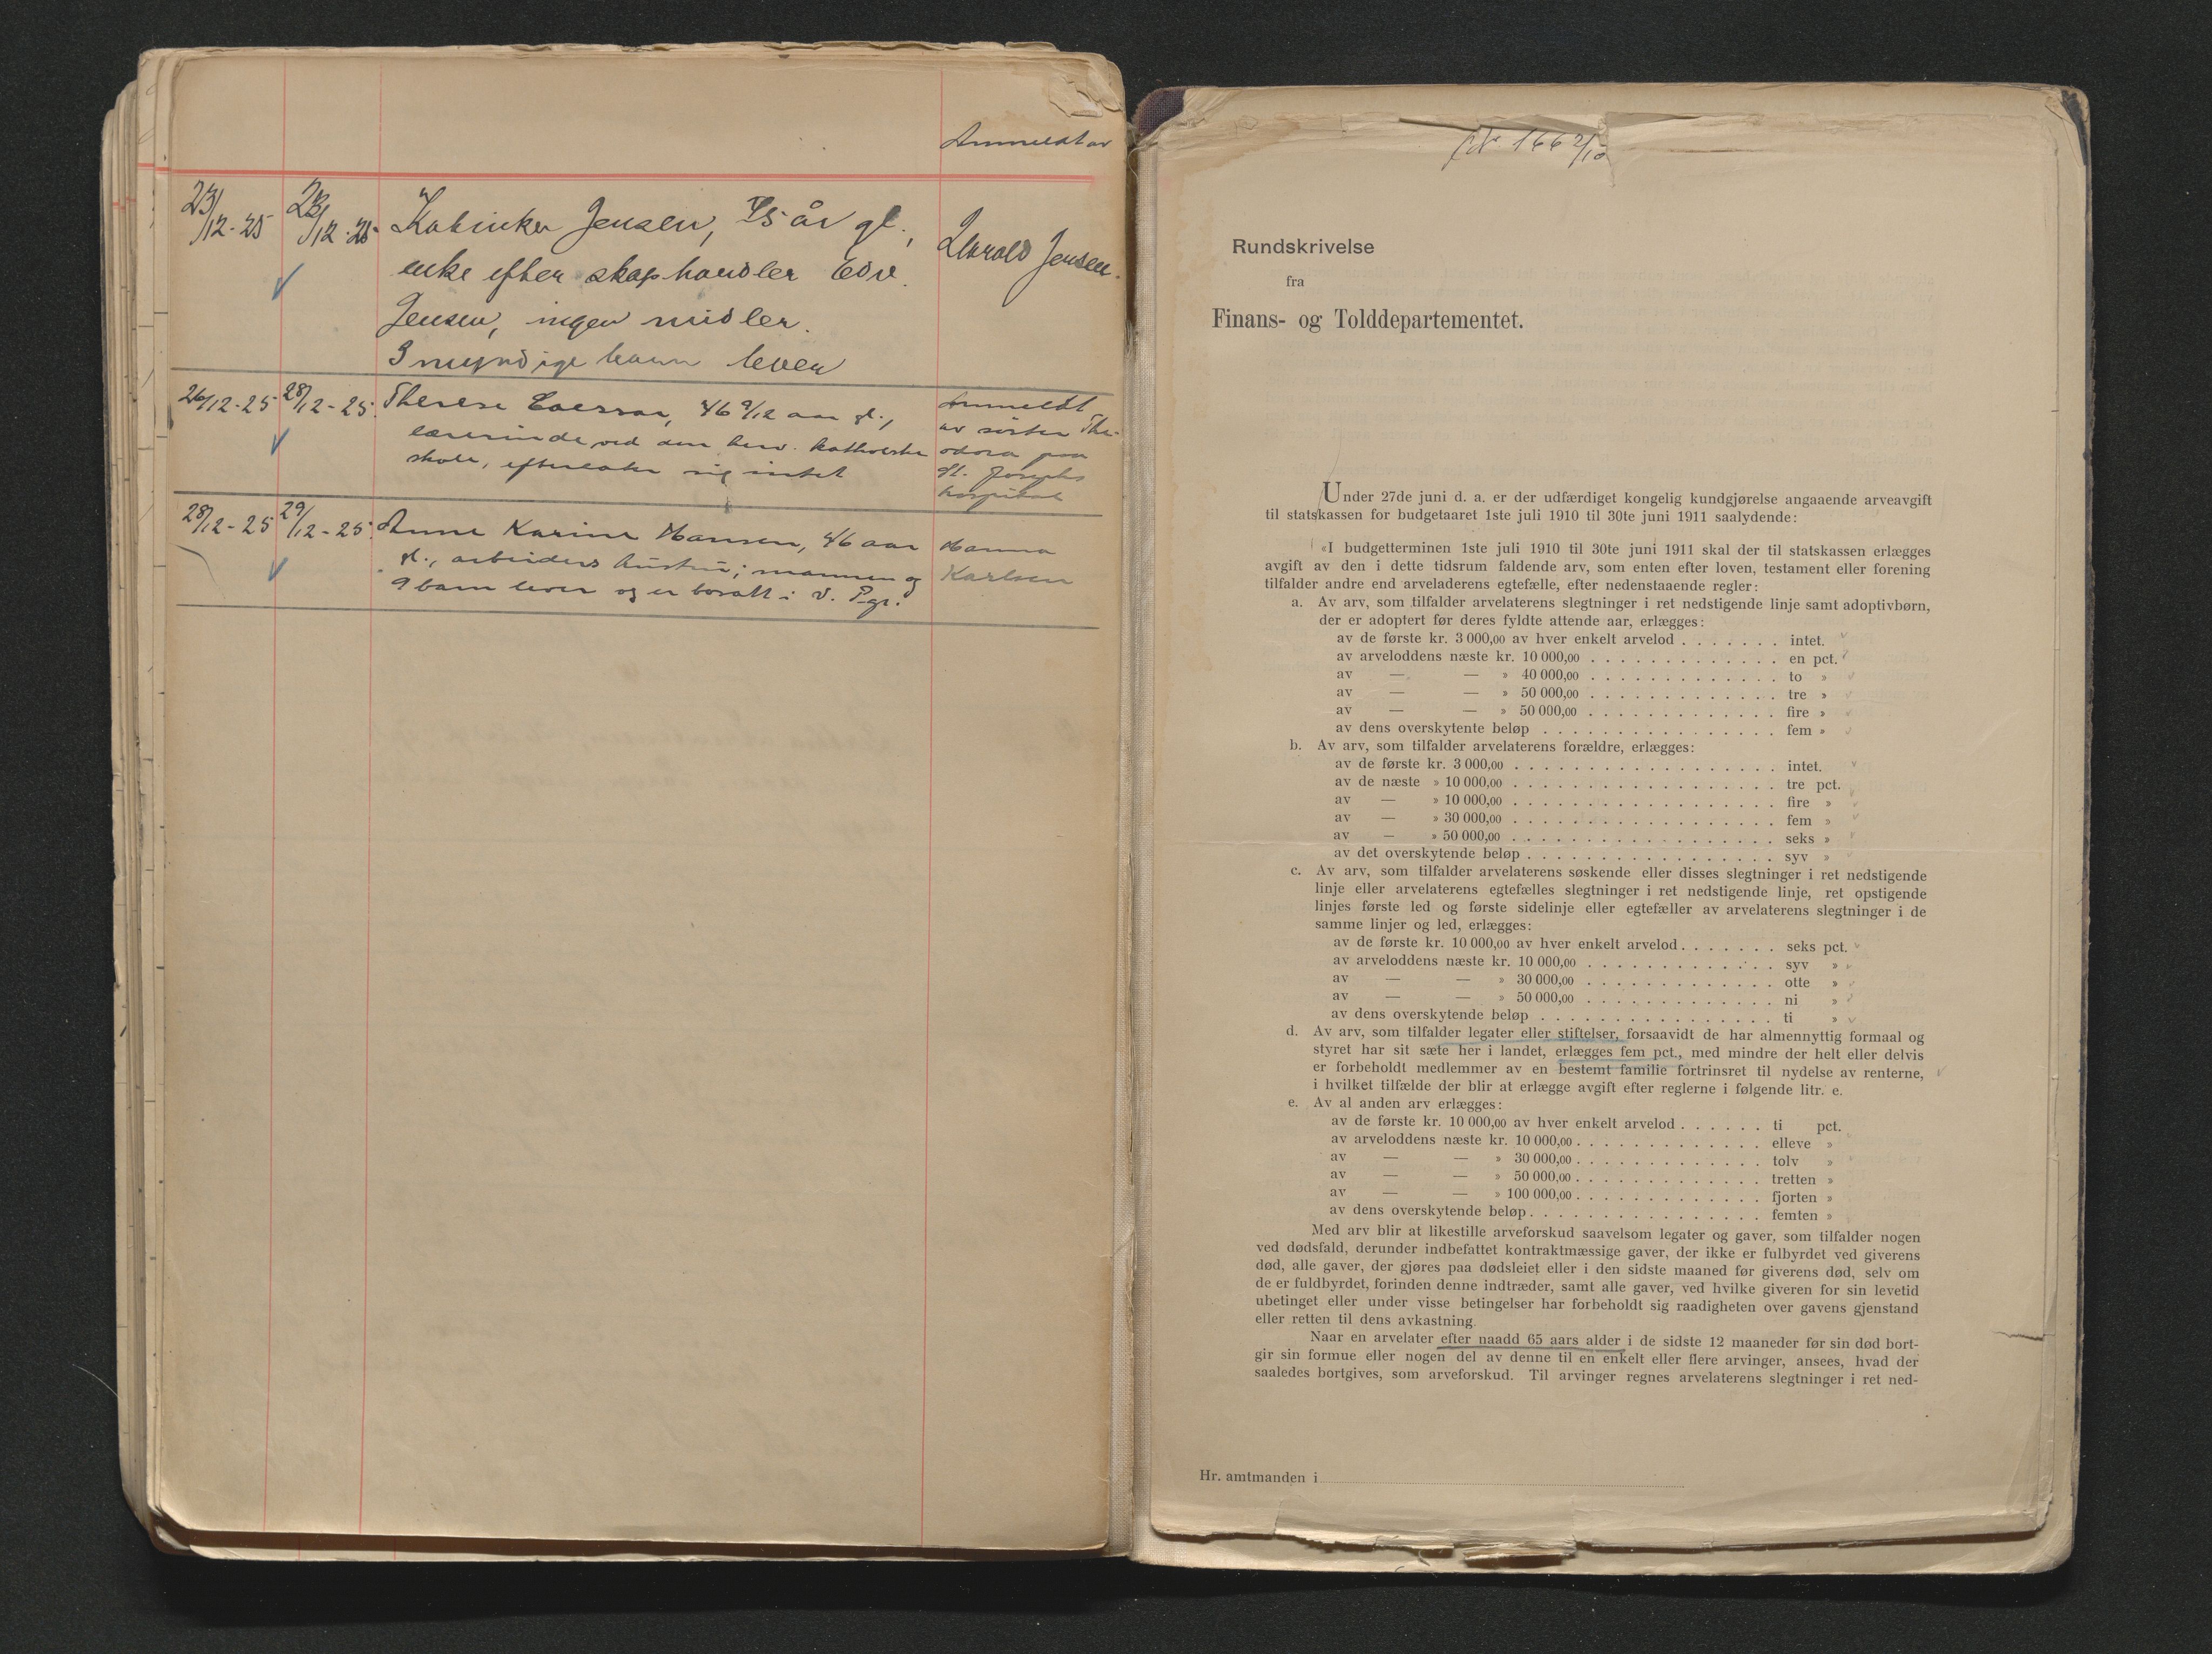 Anmeldt av
23/12-25 23/12-25 Kathinka Jensen, 75 år gl.,
enke efter skaphandler Edv.
Jensen, ingen midler.
3 myndige barn lever
Harald Jensen.
26/12-25 28/12-25. Therese, 46 9/12 aar gl.,
lærerinde ved den herv. katholske
skole, efterlater sig intet
Anmeldt
av søster The-
odora paa
St. Josephs
hospital
28/12-25 29/12-25. Anne Karine Hansen, 46 aar
gl., arbeiders hustru; mannen og
9 barn lever og er bosatt i V. Pgr.
Hanna
Karlsen
1662/10
Rundskrivelse
fra
Finans- og Tolddepartementet.
Under 27de juni d. a. er der udfærdiget kongelig kundgjørelse angaaende arveavgift
til statskassen for budgetaaret 1ste juli 1910 til 30te juni 1911 saalydende:
«I budgetterminen 1ste juli 1910 til 30te juni 1911 skal der til statskassen erlægges
avgift av den i dette tidsrum faldende arv, som enten efter loven, testament eller forening
tilfalder andre end arveladerens egtefælle, efter nedenstaaende regler:
a. Av arv, som tilfalder arvelaterens slegtninger i ret nedstigende linje samt adoptivbørn,
der er adoptert før deres fyldte attende aar, erlægges:
av de første kr. 3 000,00 av hver enkelt arvelod . . . . . . . intet.
av arveloddens næste kr. 10 000,00 . . . . . . . . . . . . . en pct.
av — — » 40 000,00 . . . . . . . . . . . . . to »
av — — » 50 000,00 . . . . . . . . . . . . . tre »
av — — » 50 000,00 . . . . . . . . . . . . . fire »
av dens overskytente beløp . . . . . . . . . . . . . . . . fem »
b. Av arv, som tilfalder arvelaterens forældre, erlægges:
av de første kr. 3 000,00 . . . . . . . . . . . . . . . . . . intet.
av de næste » 10 000,00 . . . . . . . . . . . . . . . . . . tre pct.
av — » 10 000,00 . . . . . . . . . . . . . . . . . . fire »
av — » 30 000,00 . . . . . . . . . . . . . . . . . . fem »
av — » 50 000,00 . . . . . . . . . . . . . . . . . . seks »
av det overskytende beløp . . . . . . . . . . . . . . . . . syv »
c. Av arv, som tilfalder arvelaterens søskende eller disses slegtninger i ret nedstigende
linje eller arvelaterens egtefælles slegtninger i ret nedstigende linje, ret opstigende
linjes første led og første sidelinje eller egtefæller av arvelaterens slegtninger i de
samme linjer og led, erlægges:
av de første kr. 10 000,00 av hver enkelt arvelod . . . . . . . seks pct.
av arveloddens næste kr. 10 000,00 . . . . . . . . . . . . . syv »
av — — » 30 000,00 . . . . . . . . . . . . . otte »
av — — » 50 000,00 . . . . . . . . . . . . . ni »
av dens overskytende beløp . . . . . . . . . . . . . . . . ti »
d. Av arv, som tilfalder legater eller stiftelser, forsaavidt de har almennyttig formaal og
styret har sit sæte her i landet, erlægges fem pct., med mindre der helt eller delvis
er forbeholdt medlemmer av en bestemt familie fortrinsret til nydelse av renterne,
i hvilket tilfælde der blir at erlægge avgift efter reglerne i følgende litr. e.
e. Av al anden arv erlægges:
av de første kr. 10 000,00 av hver enkelt arvelod . . . . . . ti pct.
av arveloddens næste kr. 10 000,00 . . . . . . . . . . . . . elleve »
av — — » 30 000,00 . . . . . . . . . . . . . tolv »
av — — » 50 000,00 . . . . . . . . . . . . . tretten »
av — — » 100 000,00 . . . . . . . . . . . . . fjorten »
av dens overskytende beløp . . . . . . . . . . . . . . . . femten »
Med arv blir at likestille arveforskud saavelsom legater og gaver, som tilfalder nogen
ved dødsfald, derunder indbefattet kontraktmæssige gaver, der ikke er fulbyrdet ved giverens
død, alle gaver, der gjøres paa dødsleiet eller i den sidste maaned før giverens død, selv om
de er fuldbyrdet, forinden denne indtræder, samt alle gaver, ved hvilke giveren for sin levetid
ubetinget eller under visse betingelser har forbeholdt sig raadigheten over gavens gjenstand
eller retten til dens avkastning.
Naar en arvelater efter naadd 65 aars alder i de sidste 12 maaneder før sin død bort-
gir sin formue eller nogen del av denne til en enkelt eller flere arvinger, ansees, hvad der
saaledes bortgives, som arveforskud. Til arvinger regnes arvelaterens slegtninger i ret ned-
Hr. amtmanden i